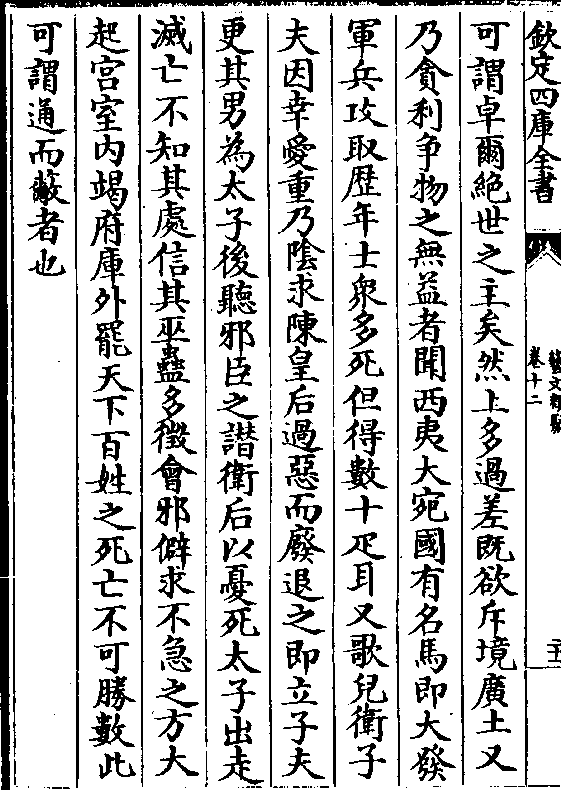 欽定四庫全書
藝文類聚
卷十二
二十
可謂卓爾絶世之主矣然上多過差既欲斥境廣土又
乃貪利争物之無益者聞西夷大宛國有名馬即大發
軍兵攻取歴年士衆多死但得數十疋耳又歌兒衛子
夫因幸愛重乃陰求陳皇后過惡而廢退之即立子夫
更其男為太子後聽邪臣之譖衛后以憂死太子出走
滅亡不知其處信其巫蠱多徵會邪僻求不急之方大
起宫室内竭府庫外罷天下百姓之死亡不可勝數此
可謂通而蔽者也